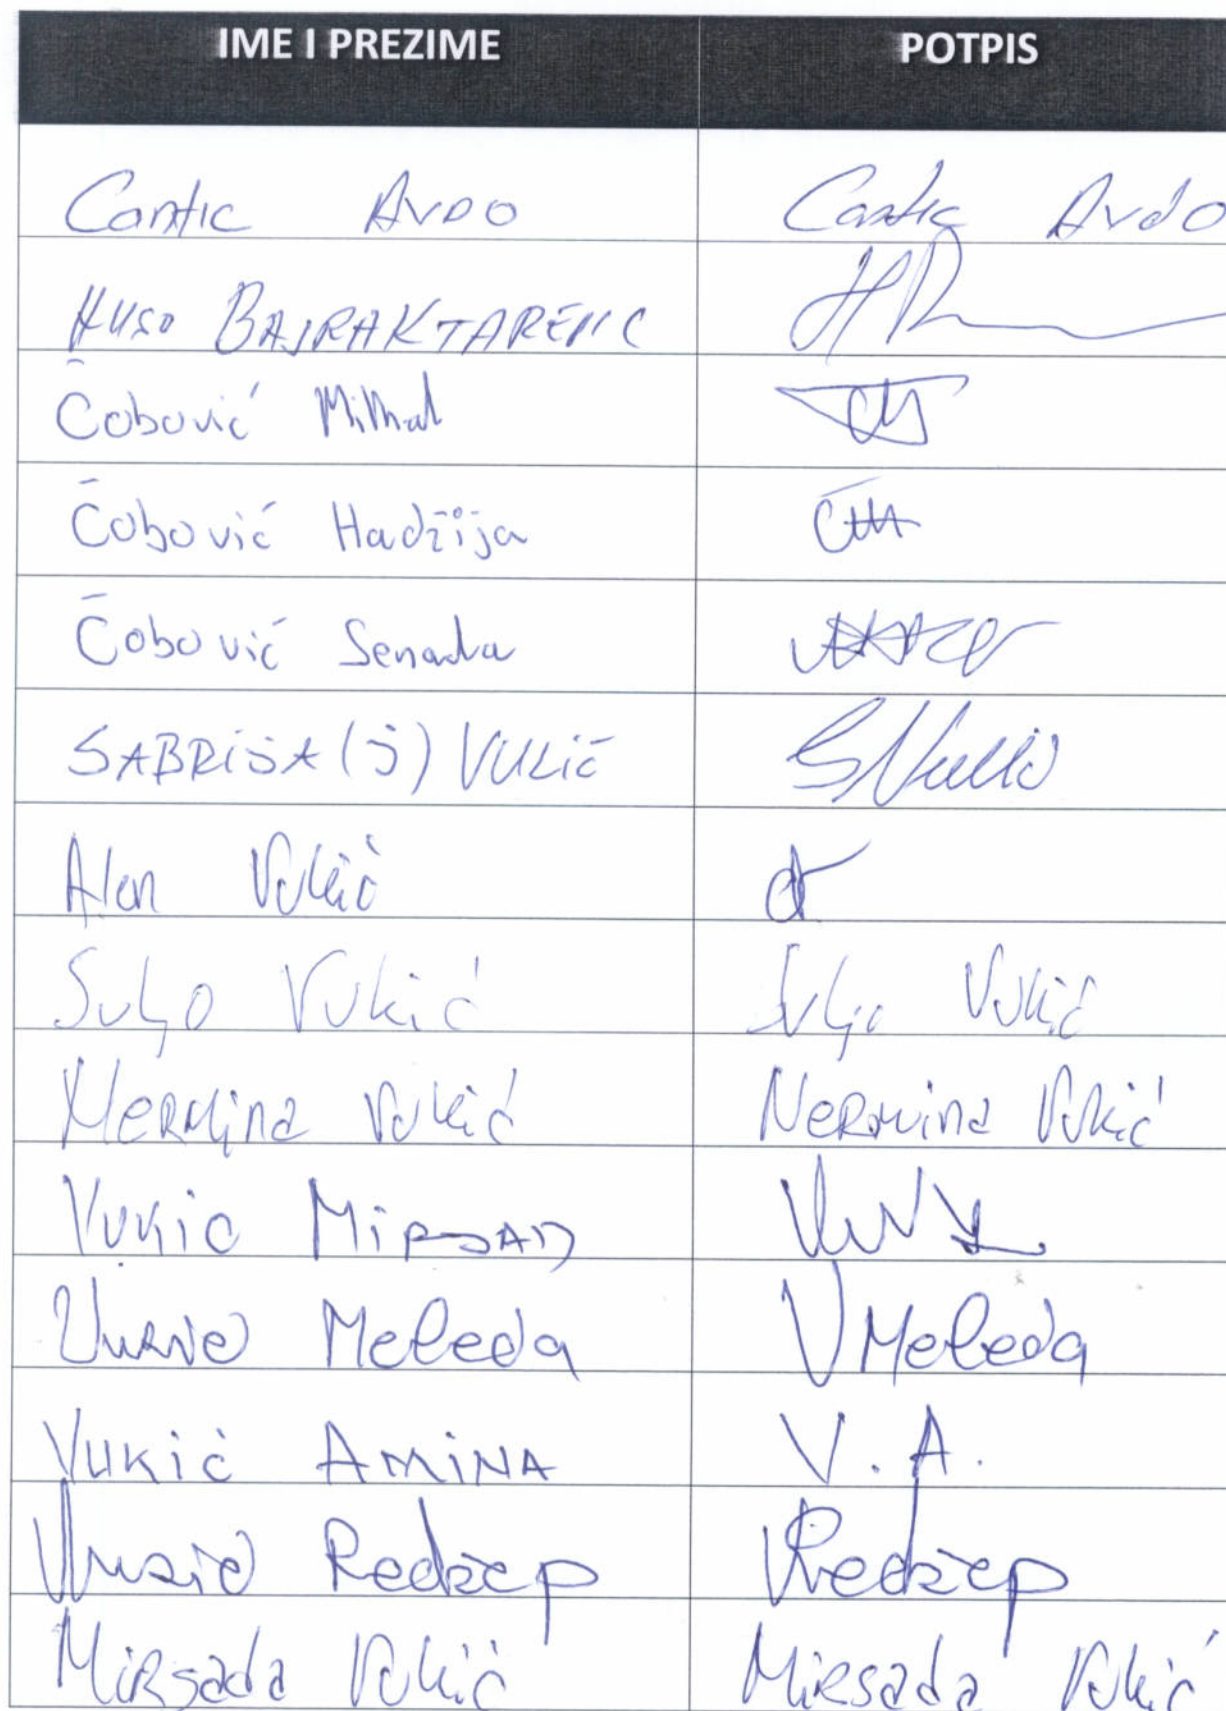 IME I PREZIME POTPIS
Cantic AVDO Cantic Avdo
HUSO BAJRAKTAREVIC
Čobović Mithad
Čobović Hadžija
Čobović Senada
SABRIJA (Š) VUKIĆ S Vukić
Alen Vukić
Suljo Vukić Suljo Vukić
Nermina Vukić Nermina Vukić
Vukić MiRSAD
Vukić Meleda V Meleda
Vukić AMiNA V. A.
Vukić Redžep V Redžep
Mirsada Vukić Mirsada Vukić